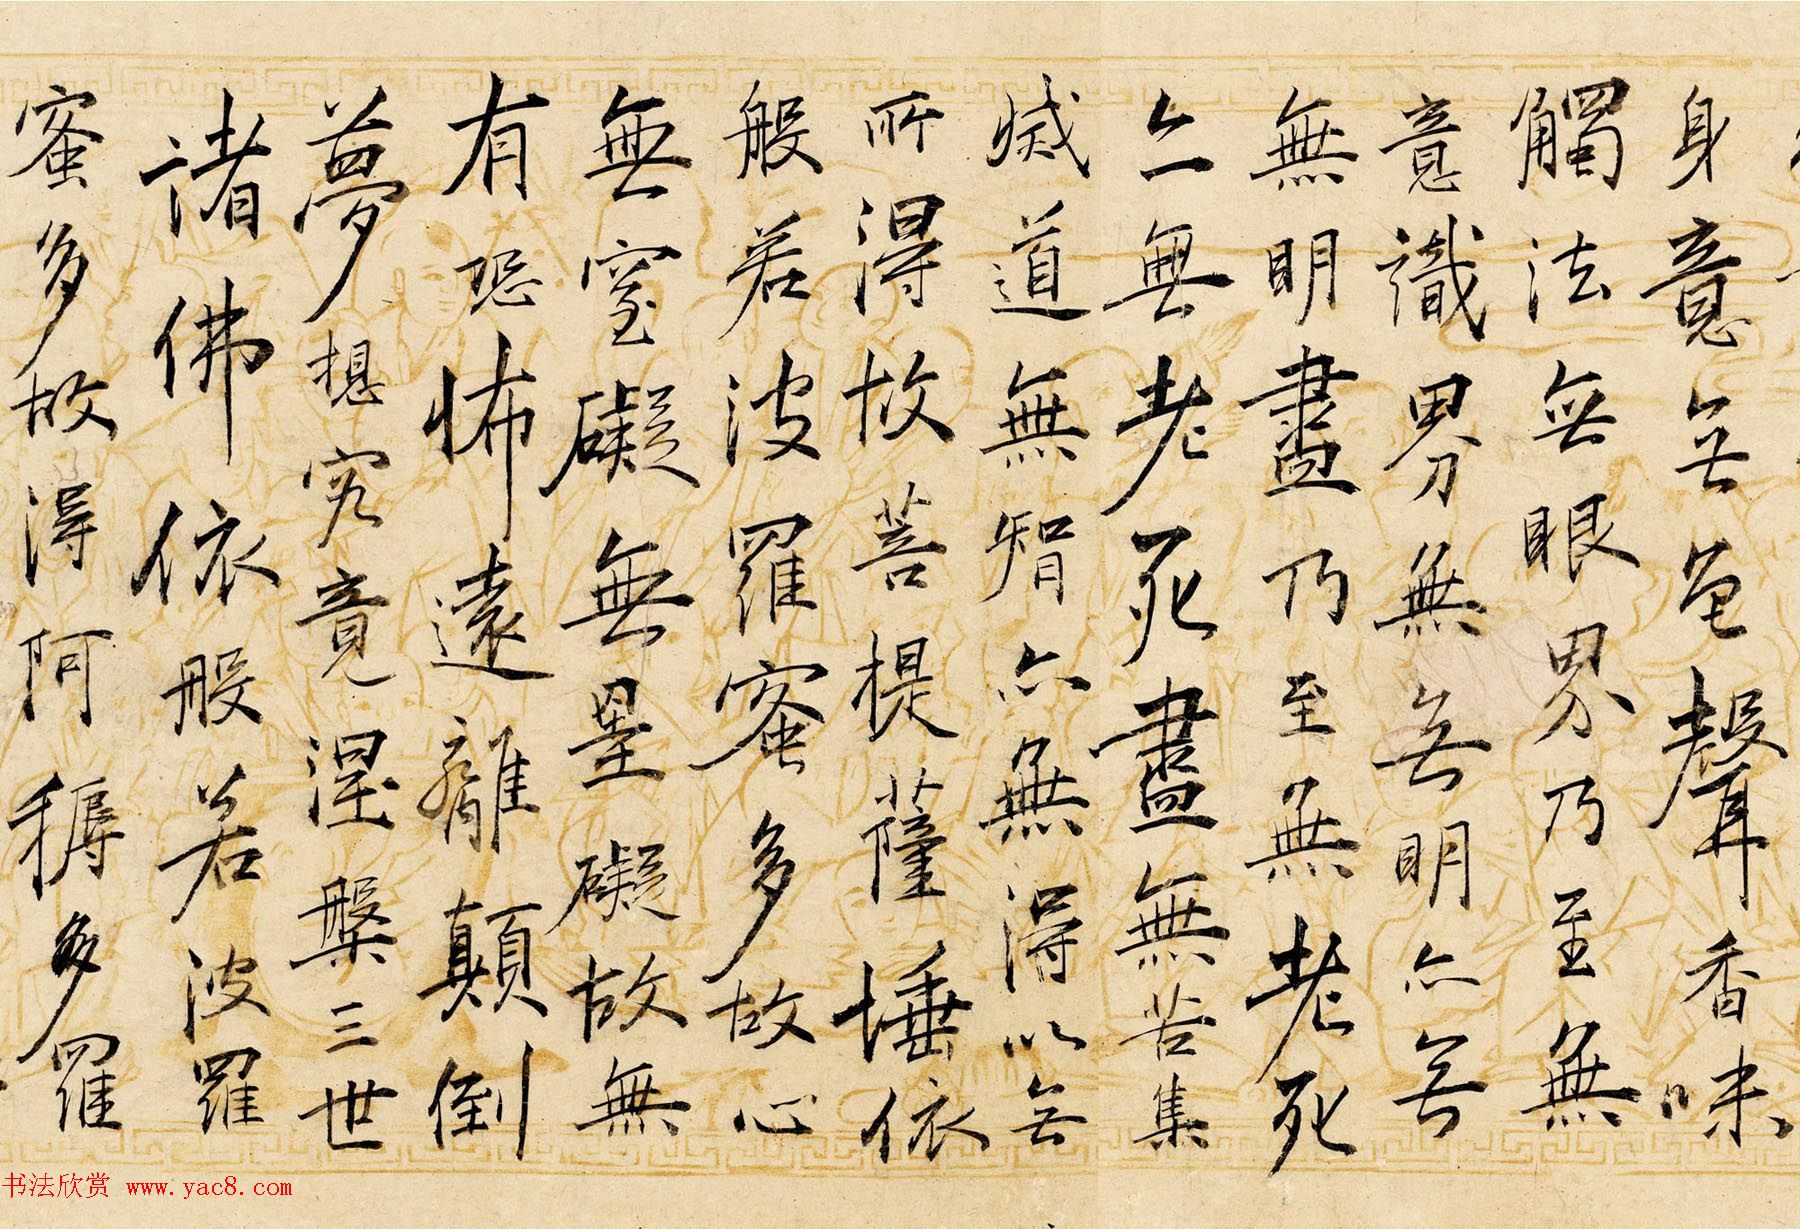 身意無色聲香味
觸法無眼界乃至無
意識界無無明亦無
無明盡乃至無老死
亦無老死盡無苦集
滅道無智亦無得以無
所得故菩提薩埵依
般若波羅蜜多故心
無窒礙無罣礙故無
有恐怖遠離顛倒
夢想究竟涅槃三世
諸佛依般若波羅
蜜多故得阿耨多羅
书法欣赏 www.yac8.com